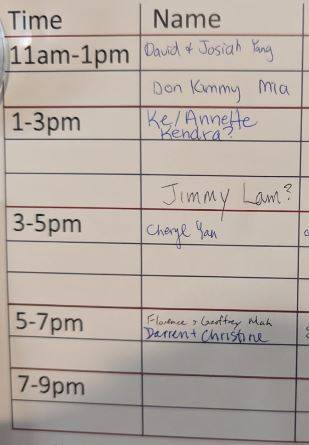 Time Name
11am-1pm David + Josiah Yang
Don Kimmy Mia
1-3pm Ke/Annette
Kendra?
Jimmy Lam?
3-5pm Cheryl Yan
5-7pm Florence & Geoffrey Mak
Darren + Christine
7-9pm